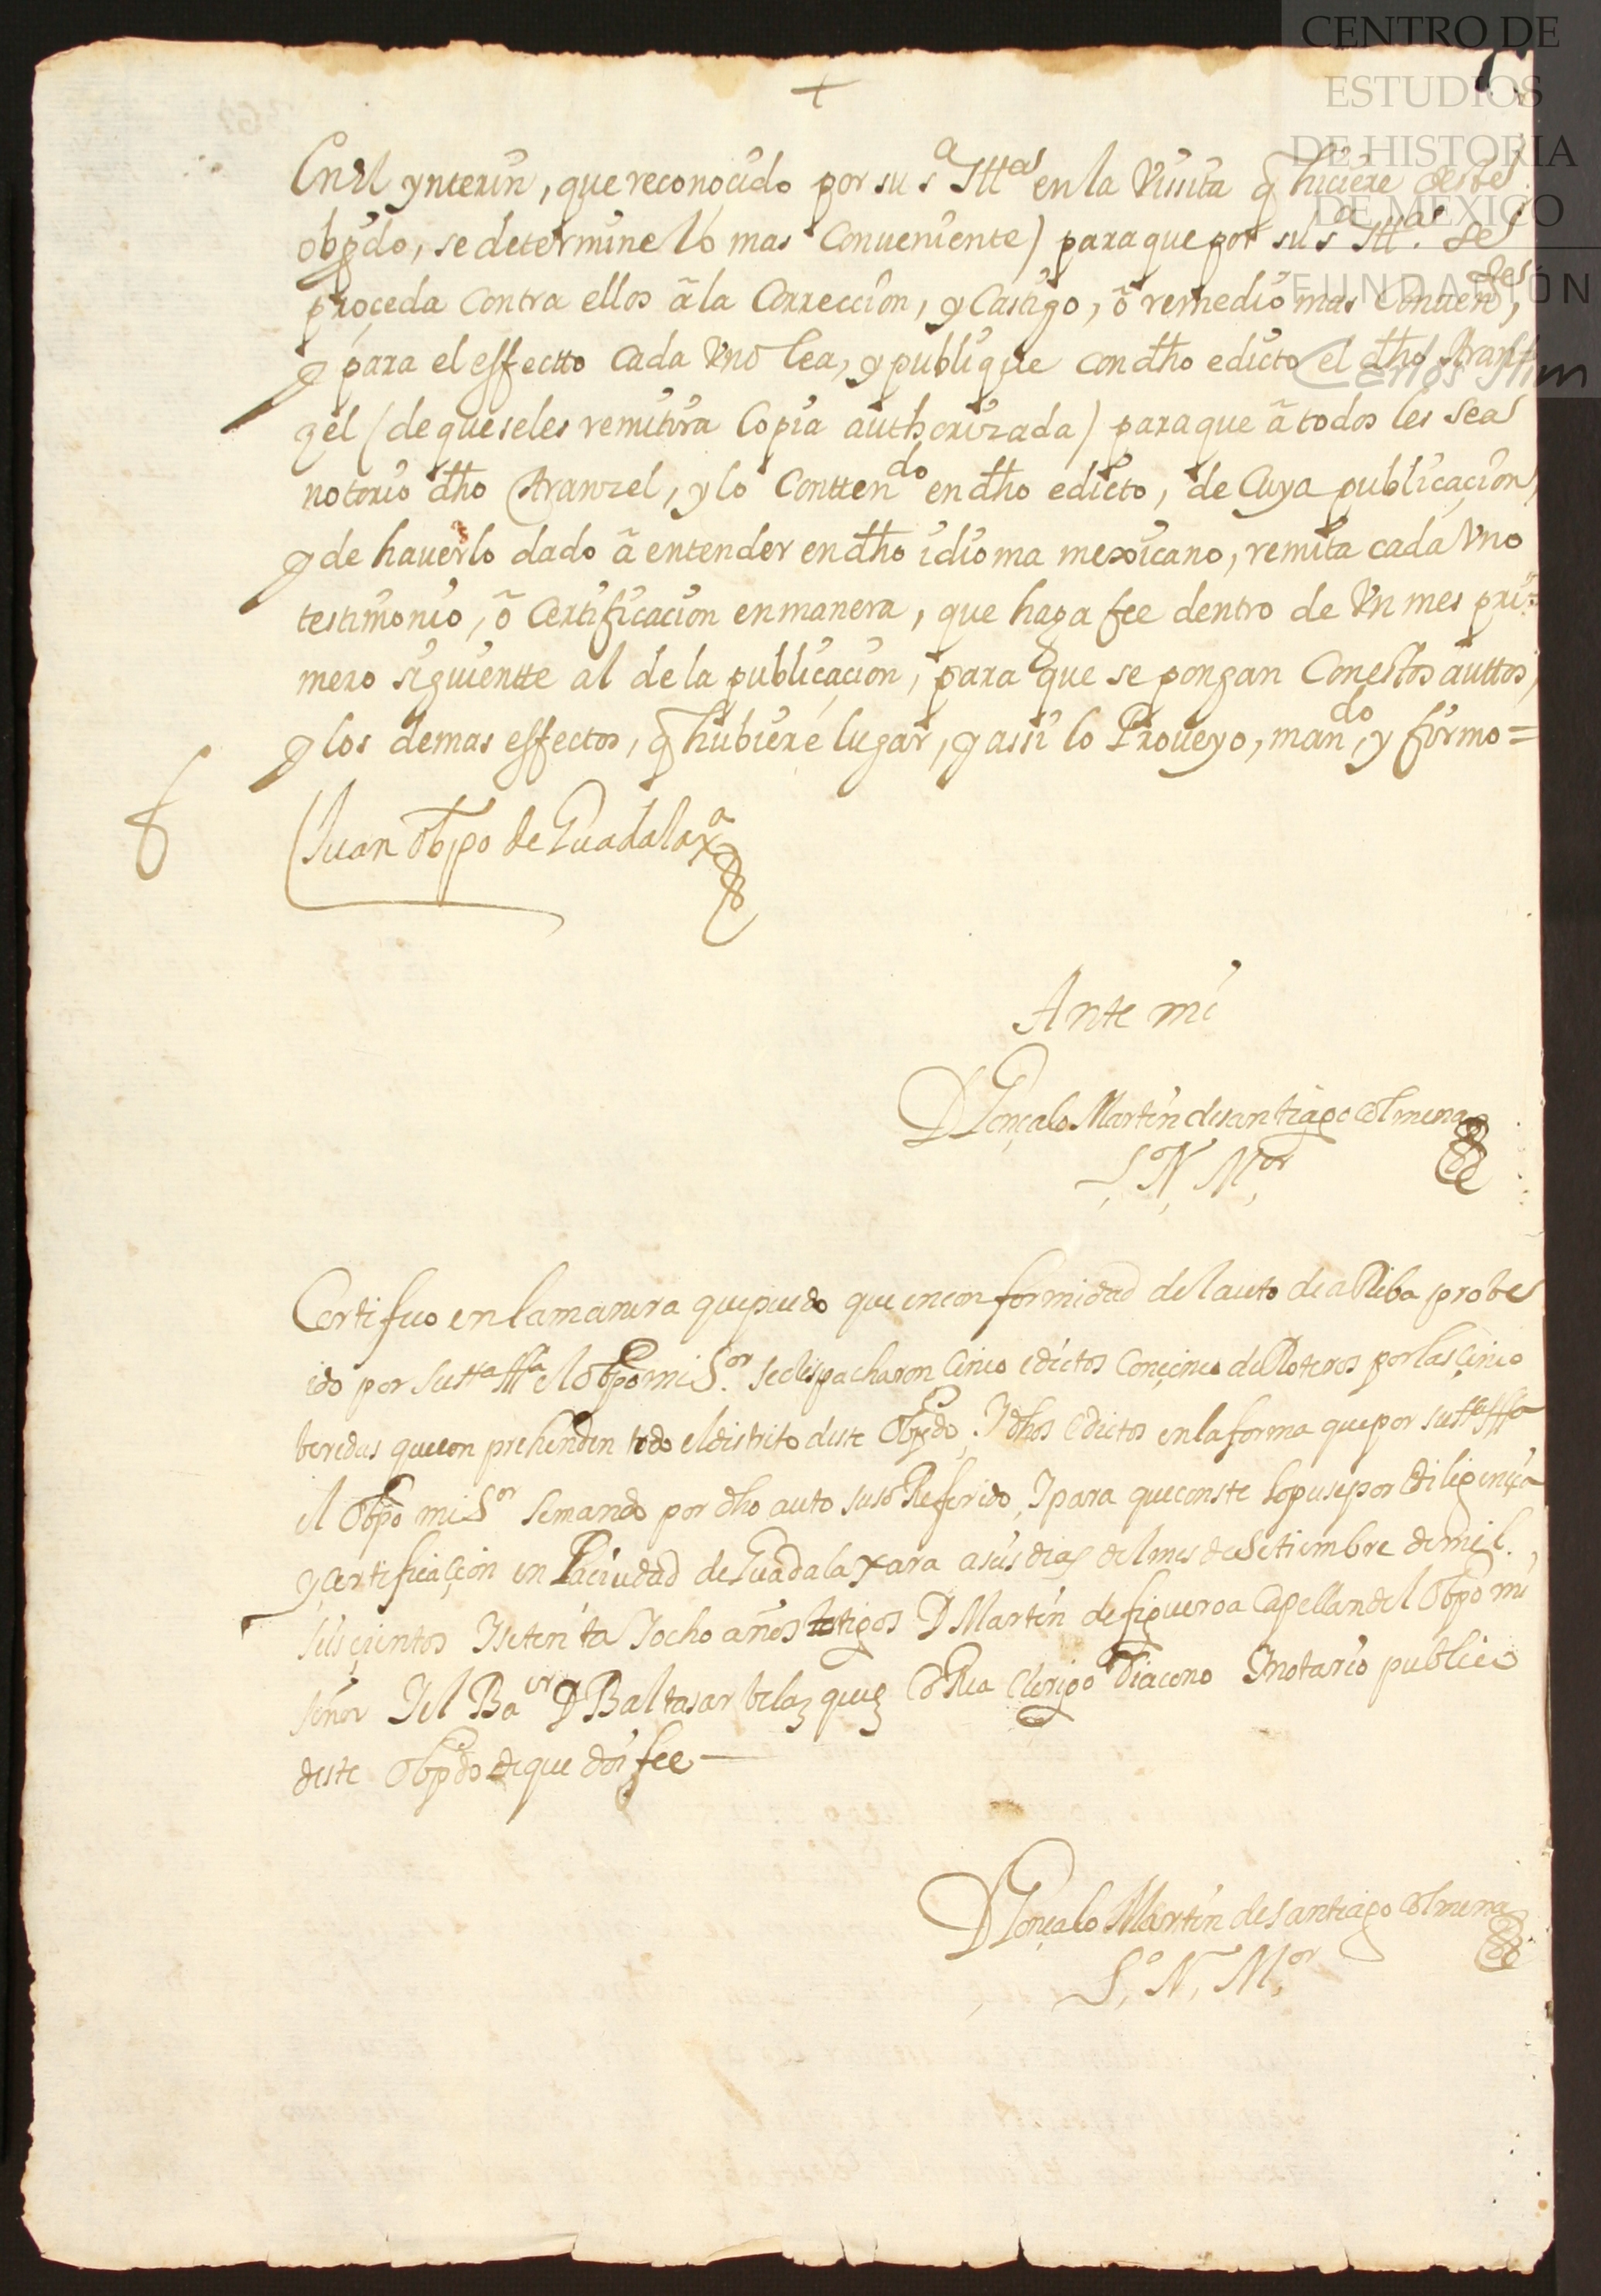 CENTRO DE
ESTUDIOS
DE HISTORIA
DE MÉXICO
FUNDACIÓN
Carlos Slim
+
En el ynterin, que reconocido por su sª Illᵃˢ en la Vissita q̃ hiciere deste
obpdo, se determine lo mas Conueniente) para que por su sª Illᵃˢ. se
proceda contra ellos ã la Correccion, y Castigo, õ remedio mas Conuenᵗᵉˢ,
y para el effectto cada Vno lea, y publique con dho edicto el dho Aran=
zel (de que se les remitira Copia authorizada) para que ã todos les sea
notorio dho Aranzel, y lo Conttenᵈᵒ en dho edicto, de Cuya publicacion,
y de hauerlo dado ã entender en dho idioma mexoicano, remita cada Vno
testimonio, õ Certificacion en manera, que haga fee dentro de Vn mes pri=
mero siguientte al de la publicacion, para que se pongan Con estos auttos,
y los demas effectos, q̃ hubiere lugar, y assi lo Proueyo, manᵈᵒ, y firmo=
Juan Obpo de Guadalaxᵃ
Ante mi
D Gonçalo Martin de santiago Colmena
S.º N. Mᵒʳ
Certifico en la manera que puedo que en conformidad del auto de aRiba probe
ido por su sʳᵃ Illᵃ el Obpo mi Sᵒʳ. se dispacharon Cinco edictos Con çinco deRoteros por las Çinco
beredas que con prehenden todo el distrito deste Obpdo, I dhos edictos en la forma que por su sʳᵃ Illᵃ
el Obpo mi Sᵒʳ se mando por dho auto suso Referido, I para que conste lo puse por diligençia
y certificaçion en la ciudad de Guadalaxara a seis dias del mes de Setiembre de mil.
seisçientos I setenta I ocho años testigos D Martin de figueroa Capellan del Obpo mi
señor I el Baᵉʳ D Baltasar belazquez Clerigo Diacono I notario publico
deste Obpdo de que doi fee —
D Gonçalo Martin de santiago Colmena
S.º N. Mᵒʳ